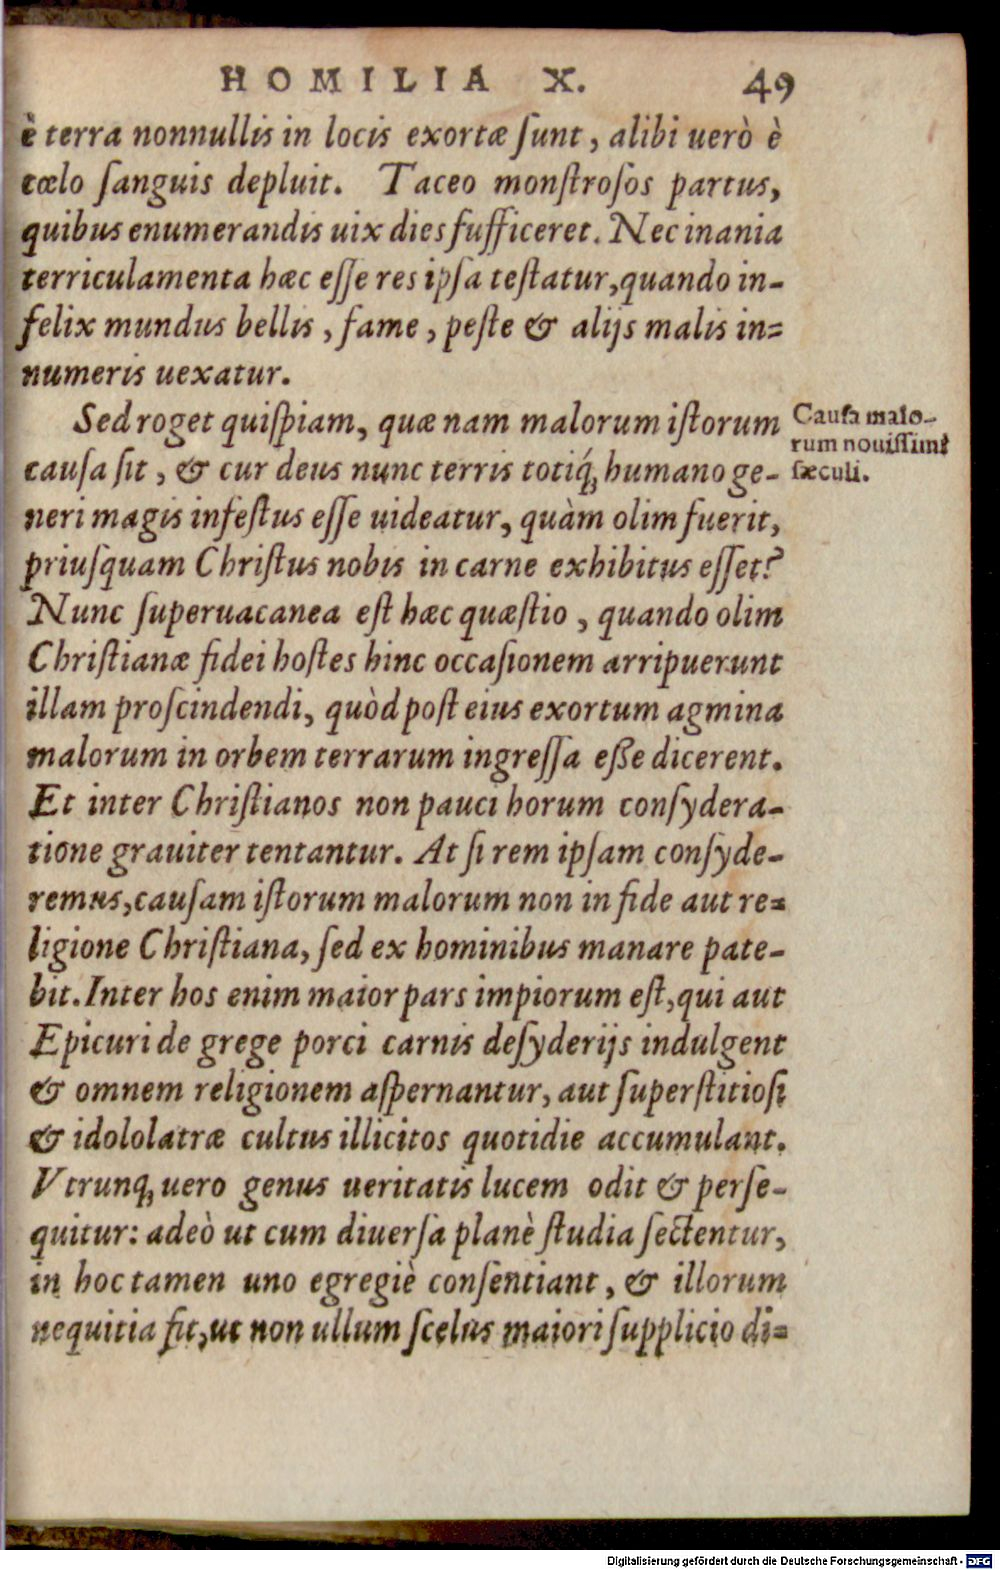 HOMILIA X. 49
è terra nonnullis in locis exortæ ſunt, alibi uerò è
cœlo ſanguis depluit. Taceo monſtroſos partus,
quibus enumerandis uix dies ſufficeret. Nec inania
terriculamenta hæc eſſe res ipſa teſtatur, quando in-
felix mundus bellis, fame, peſte & alijs malis in-
numeris uexatur.
Sed roget quiſpiam, quæ nam malorum iſtorum
cauſa ſit, & cur deus nunc terris totiq́; humano ge-
neri magis infeſtus eſſe uideatur, quàm olim fuerit,
priuſquam Chriſtus nobis in carne exhibitus eſſet?
Nunc ſuperuacanea eſt hæc quæſtio, quando olim
Chriſtianæ fidei hoſtes hinc occaſionem arripuerunt
illam proſcindendi, quòd poſt eius exortum agmina
malorum in orbem terrarum ingreſſa eſſe dicerent.
Et inter Chriſtianos non pauci horum conſydera-
tione grauiter tentantur. At ſi rem ipſam conſyde-
remus, cauſam iſtorum malorum non in fide aut re-
ligione Chriſtiana, ſed ex hominibus manare pate-
bit. Inter hos enim maior pars impiorum eſt, qui aut
Epicuri de grege porci carnis deſyderijs indulgent
& omnem religionem aſpernantur, aut ſuperſtitioſi
& idololatræ cultus illicitos quotidie accumulant.
Vtrunq; uero genus ueritatis lucem odit & perſe-
quitur: adeò ut cum diuerſa planè ſtudia ſectentur,
in hoc tamen uno egregiè conſentiant, & illorum
nequitia fit, ut non ullum ſcelus maiori ſupplicio di-
Cauſa malo-
rum nouiſſimi
ſæculi.
Digitalisierung gefördert durch die Deutsche Forschungsgemeinschaft - DFG